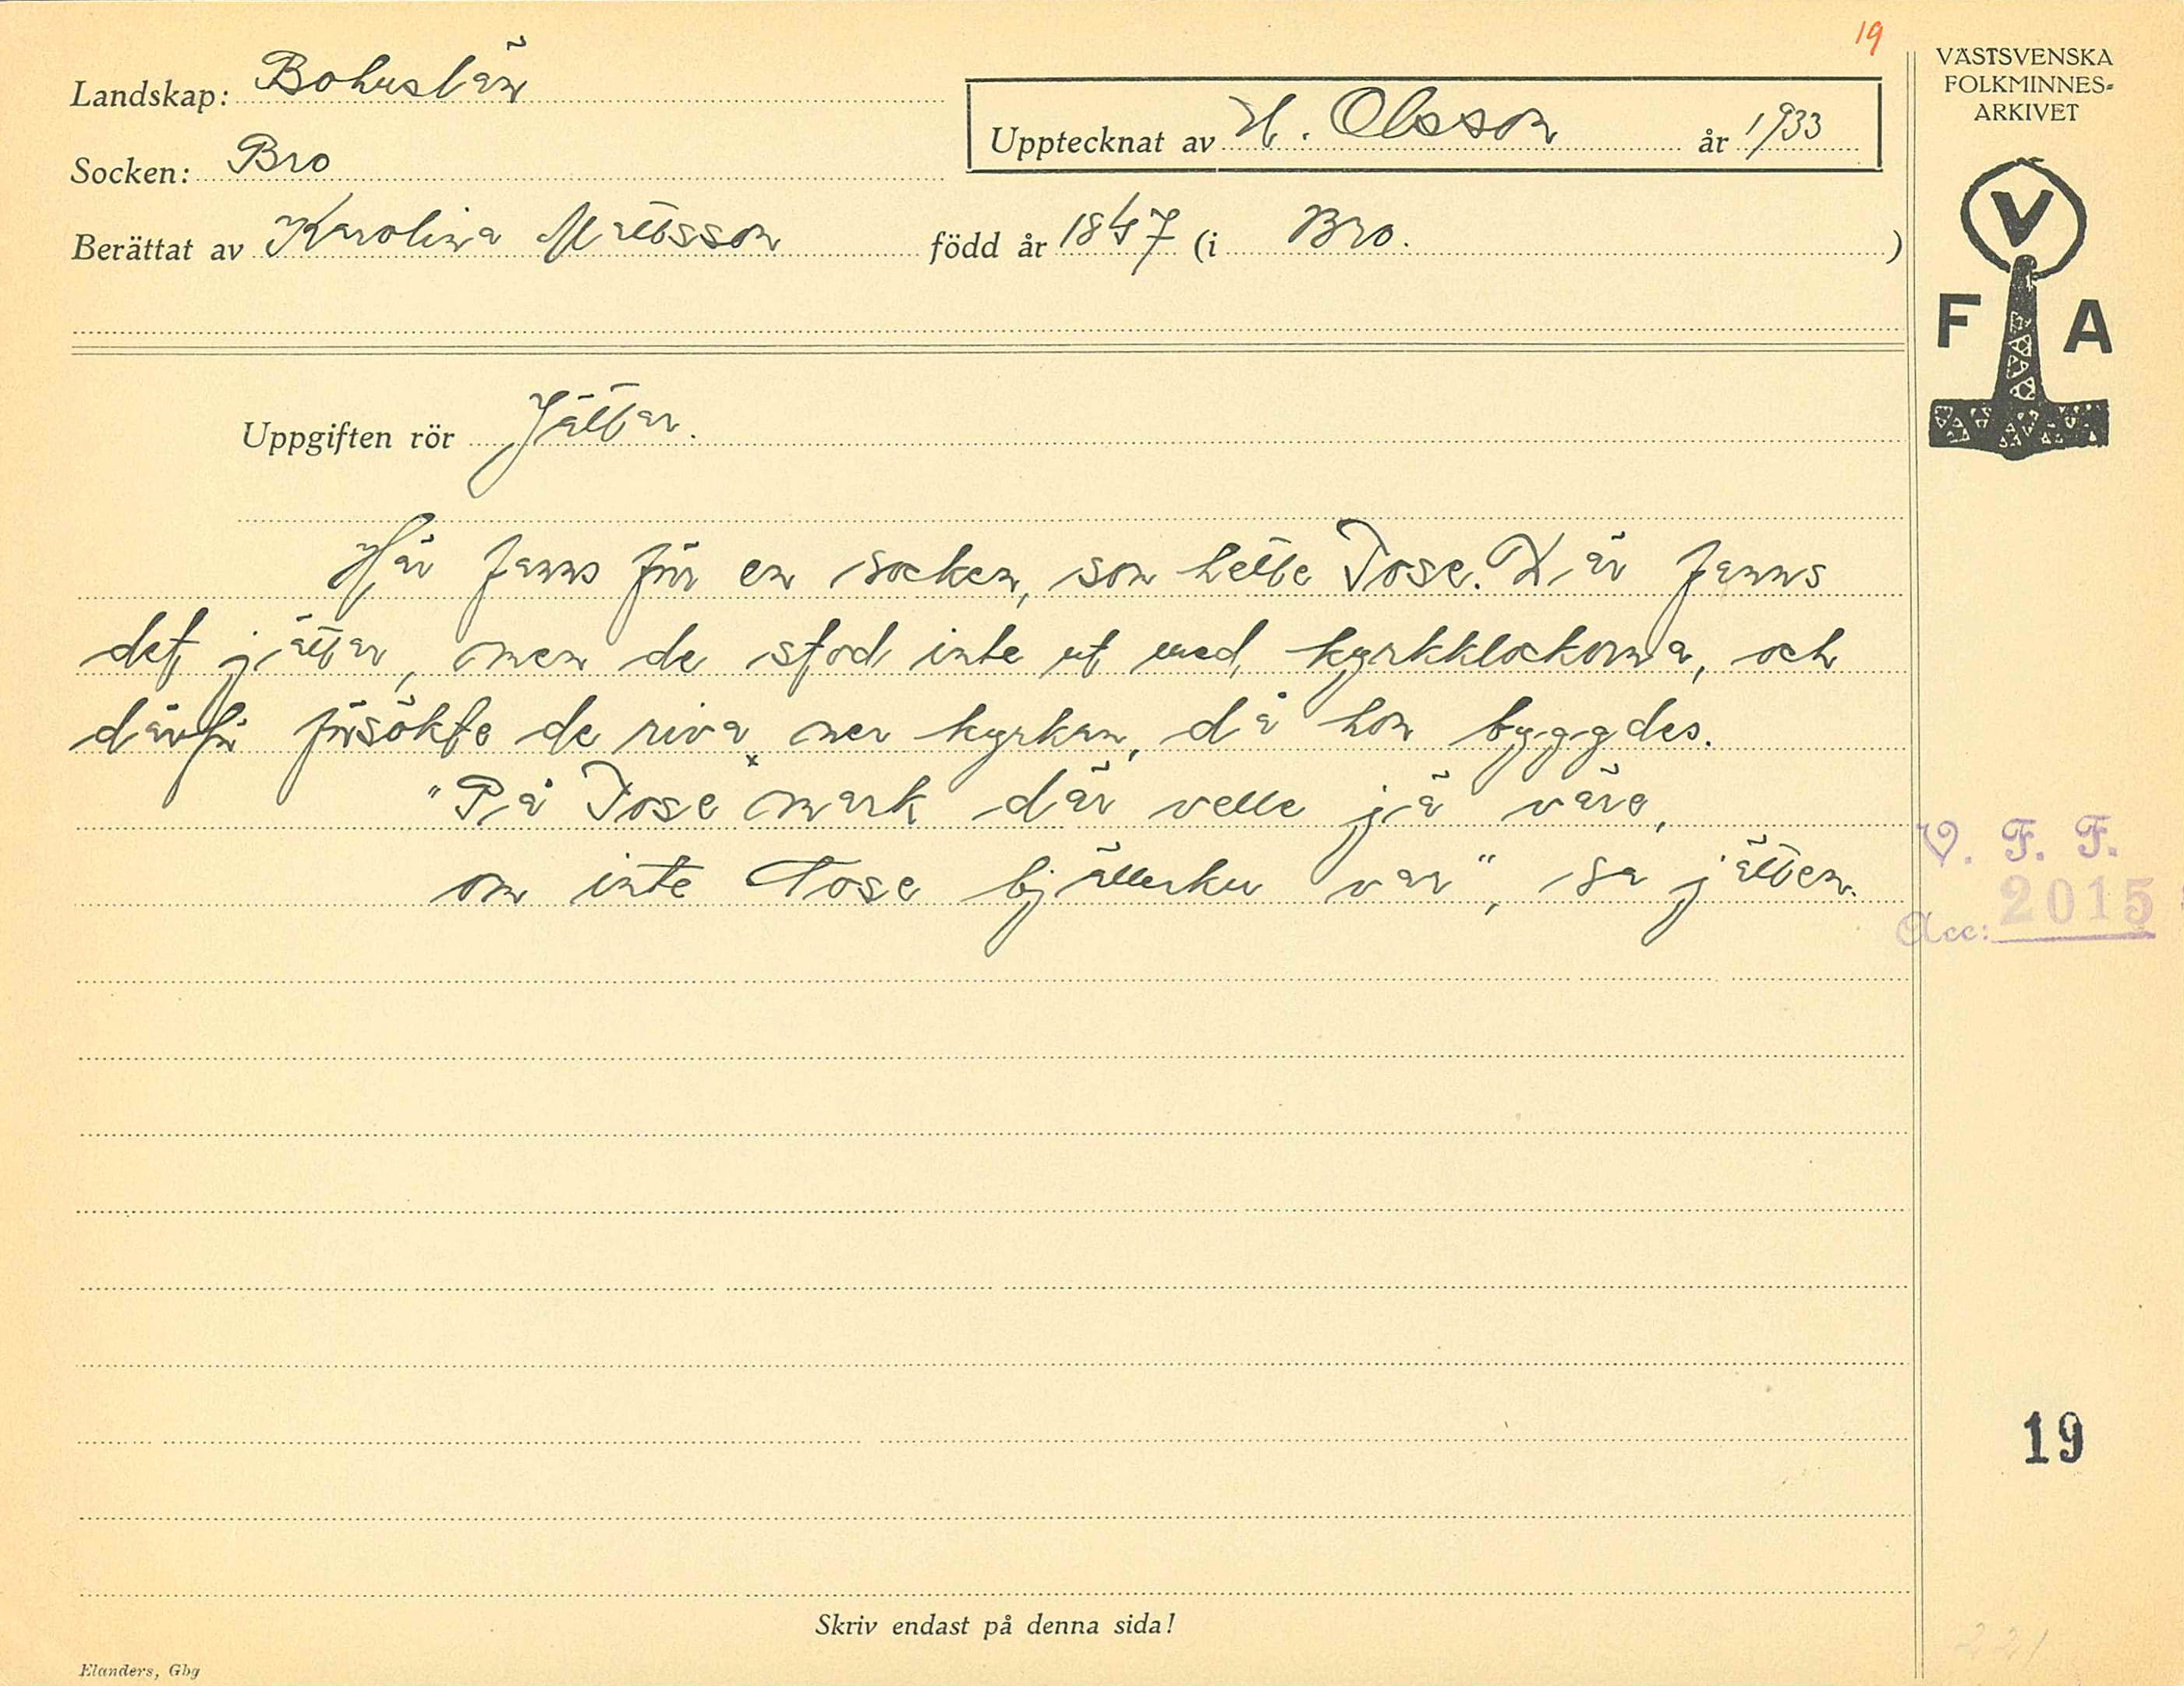 19
Landskap: Bohuslän
VÄSTSVENSKA
FOLKMINNES-
ARKIVET
Upptecknat av H. Olsson år 1933
Socken: Bro
Berättat av Karolina Mattsson född år 1847 (i Bro. )
V
F A
Uppgiften rör Jättar.
Här fanns förr en socken, som hette Tose. Där fanns
det jättar, men de stod inte ut med kyrkklockorna, och
därför försökte de riva ner kyrkan, då hon byggdes.
"På Tose mark där velle jä väre,
om inte Tose bjällerku var", sa jätten.
V. F. F.
Acc: 2015
19
Skriv endast på denna sida!
Elanders, Gbg
221